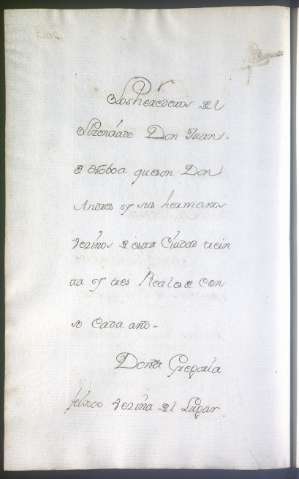 Los Herederos del
Lizenciado Don Juan
de Osboa que son Don
Andres y sus hermanos
Vezinos de esta Ciudad trein
ta y tres Reales de Cen
so cada año -
Doña Gregoria
Vezina del Lugar